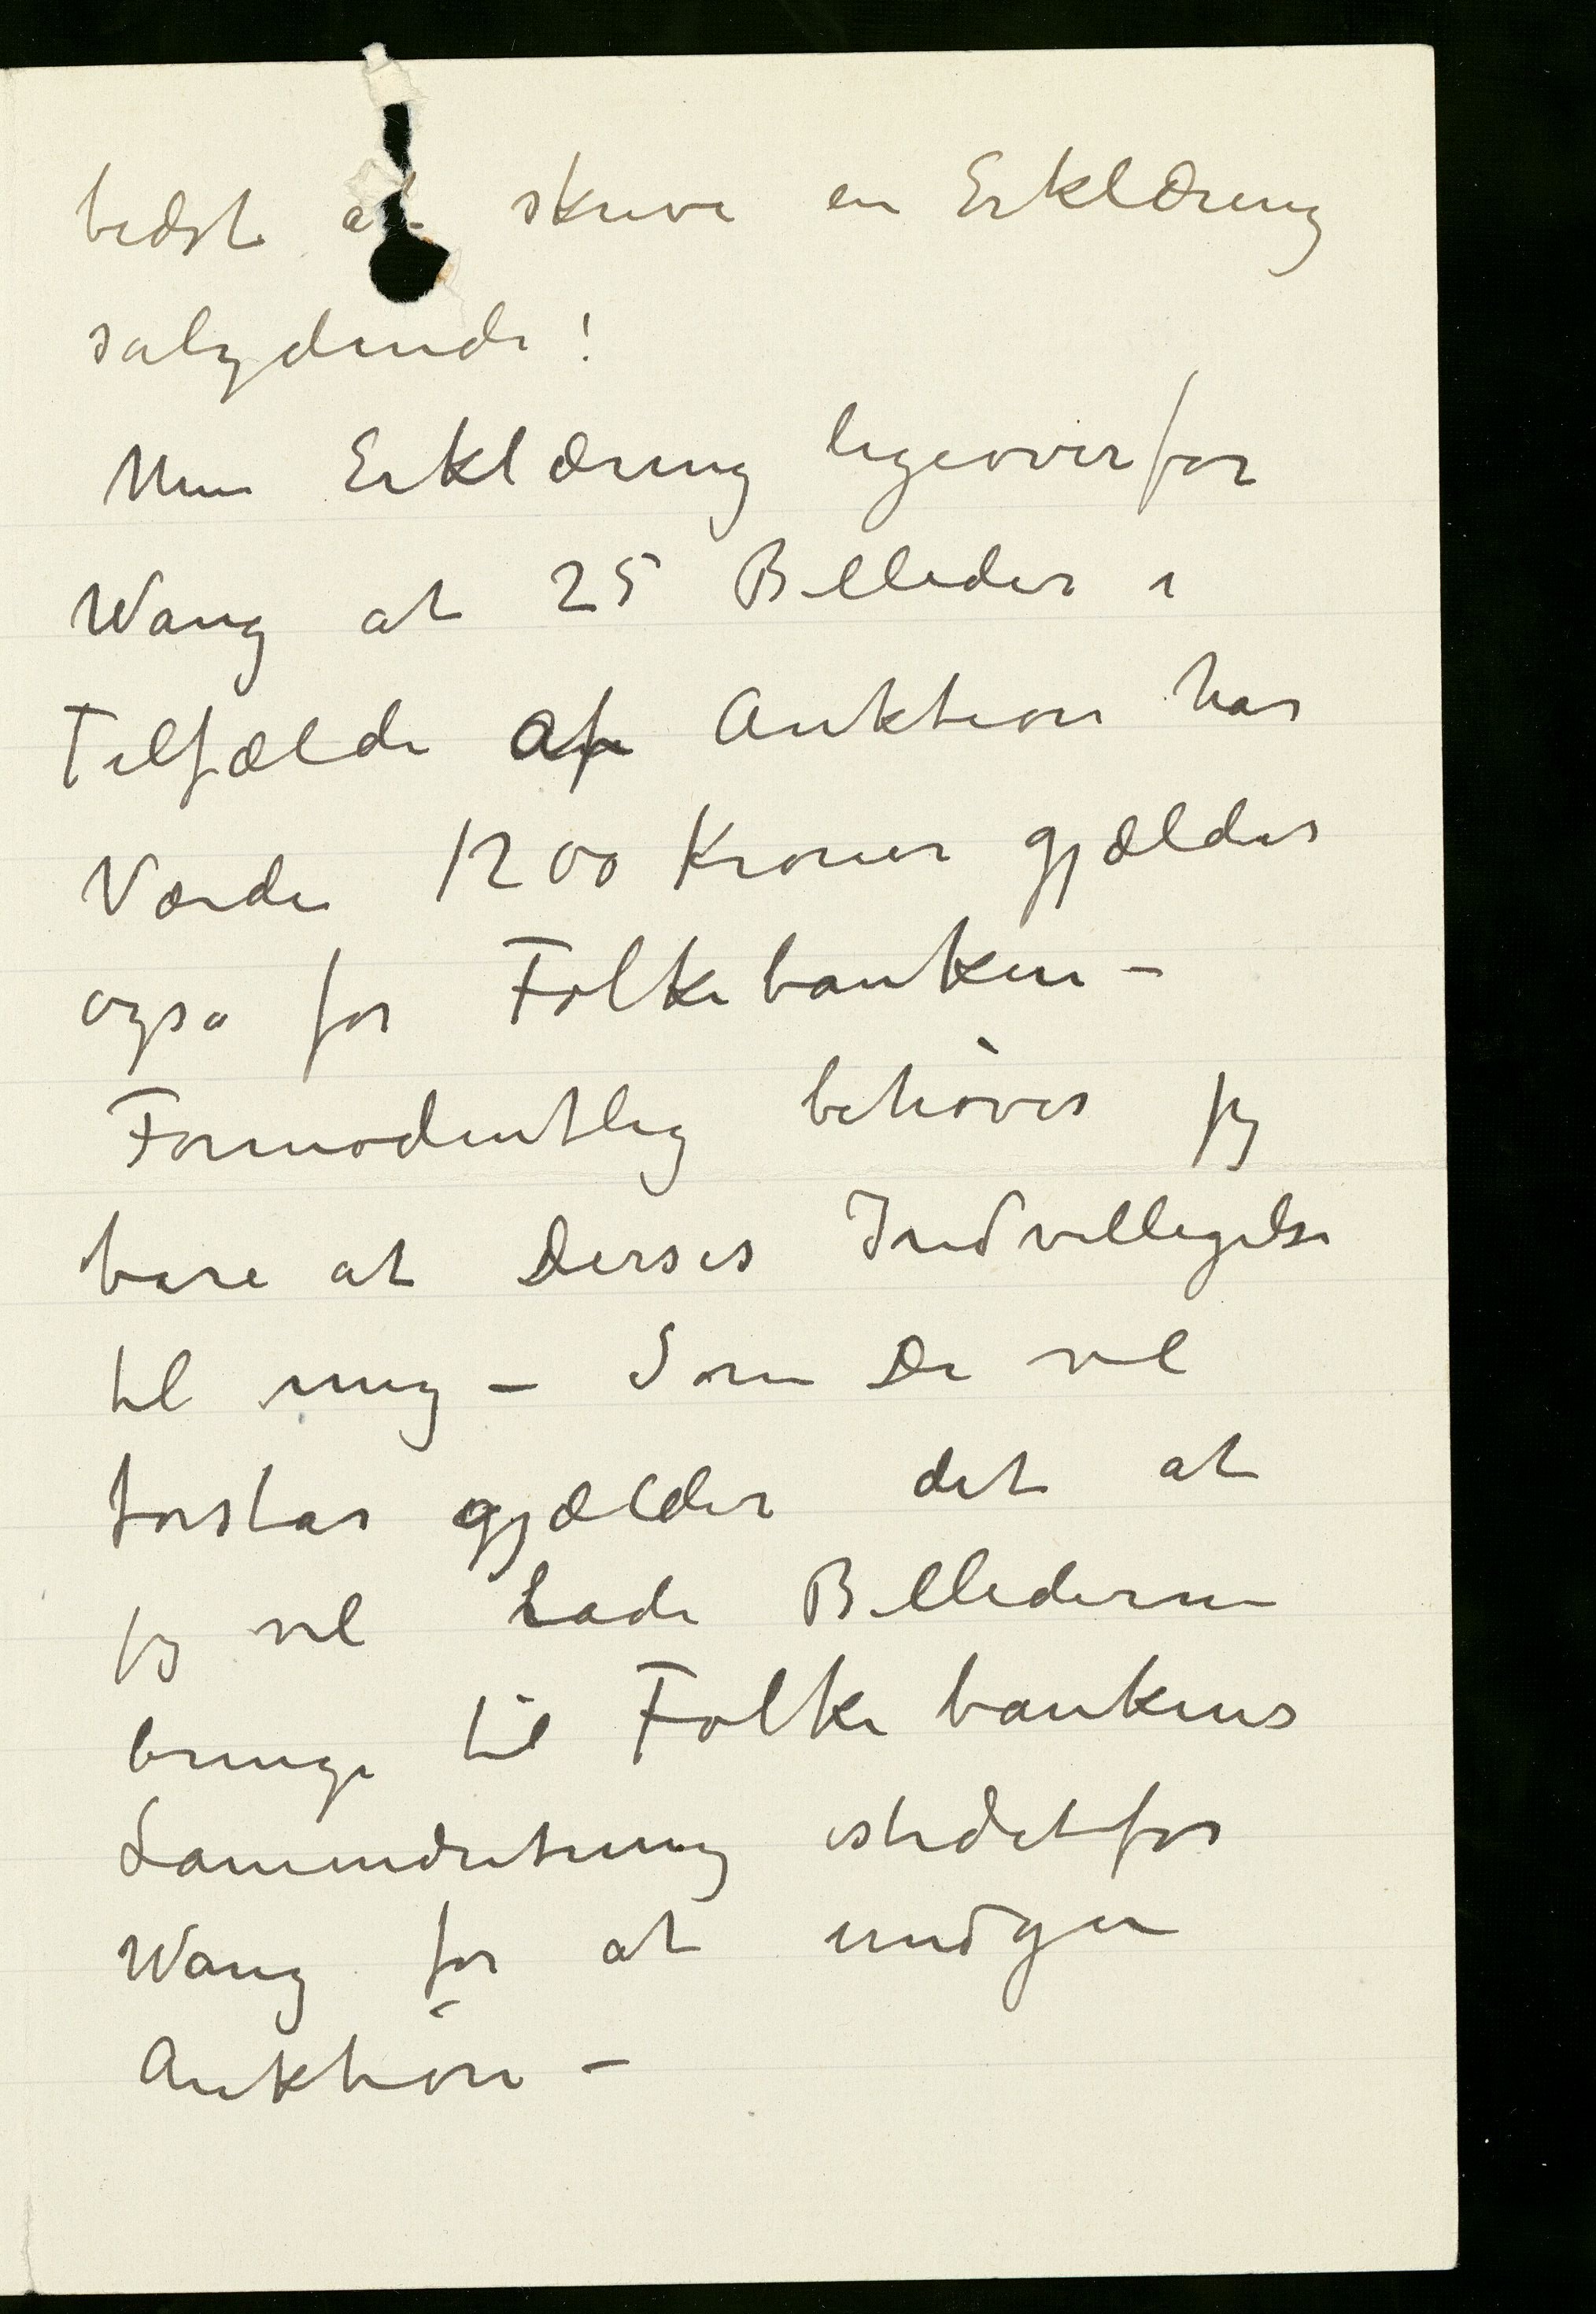 bedst at skrive en Erklæring
salydende!
Min Erklæring ligeoverfor
Wang at 25 Billeder i
Tilfælde af Auktion har
Værdi 1200 Kroner gjælder
også for Folkebanken –
Formodentlig behøver jeg
bare at Derses Indvilligelse
til mig – Som De vil
forstår gjælder det at
jeg vil lade Billederne
bringe til Folkebankens
Laaneindretning istedetfor
Wang for at undgå
Auktion –